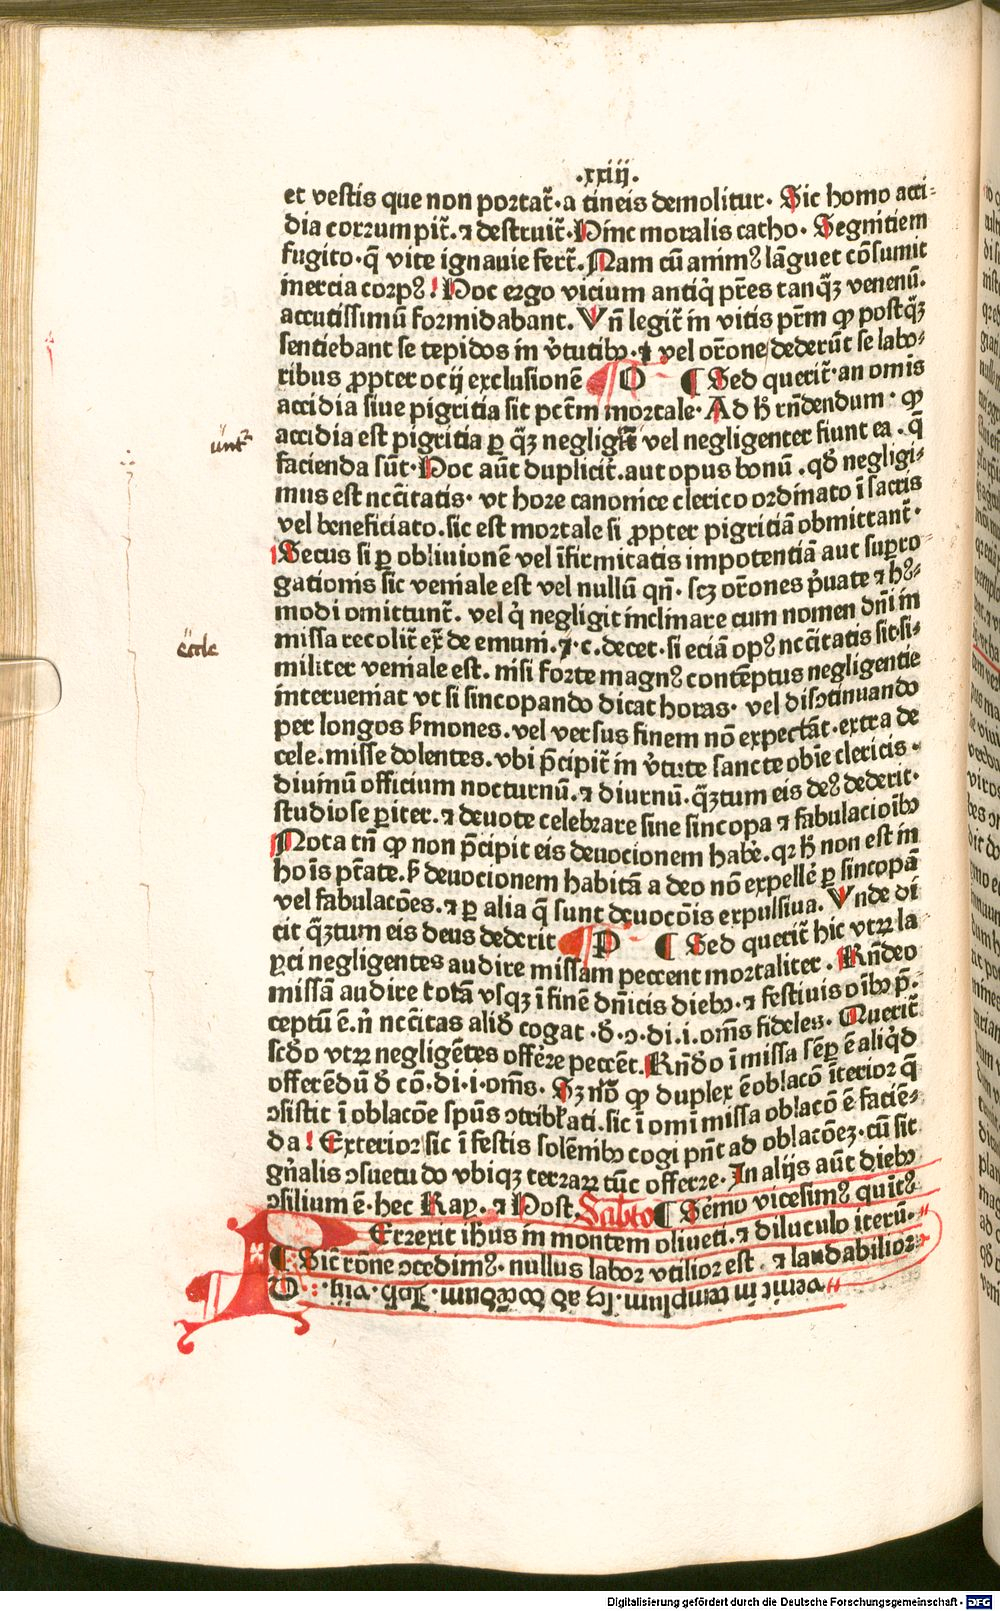 .xxiij.
et vestis que non portat᷑. a tineis demolitur. Sic homo acci-
dia corrumpit᷑. ⁊ destruit᷑. Hinc moralis catho. Segnitiem
fugito. q̄ vite ignauie fert᷑. Nam cū animꝰ lāguet cōsumit
inercia corpꝰ! Hoc ergo vicium antiq̇ pr̄es tanq̄ꝫ venenū.
accutissimū formidabant. Vn̄ legit᷑ in vitis pr̄m ꝙ postq̄ꝫ
sentiebant se tepidos in v̓tutibꝫ. vel or̄one dederūt se labo-
ribus ꝓpter ocij exclusionē O ¶ Sed querit᷑. an omis
accidia siue pigritia sit pct̄m mortale. Ad h̄ rn̄dendum. ꝙ
accidia est pigritia ꝑ q̄ꝫ negligit᷑ vel negligenter fiunt ea. q̄
facienda sūt. Hoc aūt duplicit᷑. aut opus bonū. qḋ negligi-
mus est nc̄citatis. vt hore canonice clerico ordinato ī sacris
vel beneficiato. sic est mortale si ꝓpter pigritiā obmittant᷑.
Secus si ꝑ obliuionē vel īfirmitatis impotentiā aut suꝑro-
gationis sic veniale est vel nullū qn̄. scꝫ or̄ones p̓uate ⁊ hꝰ-
modi omittunt᷑. vel q̇ negligit inclinare cum nomen dn̄i in
missa recolit᷑ ex̄ de emuni. ⁊. c. decet. si eciā opꝰ nc̄citatis sit. si-
militer veniale est. nisi forte magnꝰ contēptus negligentie
interueniat vt si sincopando dicat horas. vel disↄtinuando
per longos s̓mones. vel versus finem nō expectāt. extra de
cele. misse dolentes. vbi p̄cipit᷑ in v̓tute sancte obīe clericis.
diuinū officium nocturnū. ⁊ diurnū. q̄ꝫtum eis deꝰ dederit.
studiose ꝑiter. ⁊ deuote celebrare sine sincopa ⁊ fabulacioībꝫ
Nota tn̄ ꝙ non p̄cipit eis deuocionem habe̓. qꝛ h̄ non est in
hoīs pt̄ate. s̓ deuocionem habitā a deo nō expelle̓ ꝑ sincopā
vel fabulacōes. ⁊ ꝑ alia q̄ sunt deuocōis expulsiua. Vnde di
cit q̄ꝫtum eis deus dederit P ¶ Sed querit᷑ hic vtꝝ la
yci negligentes audire missam peccent mortaliter. Rn̄deo
missā audire totā vsqꝫ ī finē dn̄icis diebꝫ. ⁊ festiuis oībꝫ p̄-
ceptū ē. n̄ nc̄citas aliḋ cogat. ḋ. ↄ. di. i. om̄s fideles. Querit᷑
scḋo vtꝝ negligētes offerre peccēt. Rn̄ḋo ī missa sēꝑ ē aliq̇d
offerēdū ḋ cō. di. i. om̄s. Sꝫ ꝙ duplex ē oblacō īterior q̄
ↄsistit ī oblacōe spūs ↄtribulati. sic ī omī missa oblacō ē faciē-
da! Exterior sic ī festis solēnibꝫ cogi pn̄t ad oblacōeꝫ. cū sit
gn̄alis ↄsuetudo vbiqꝫ terrarꝝ tūc offerre. In alijs aūt diebꝫ
ↄsilium ē. hec Ray. ⁊ Host. Sabto ¶ Sermo vicesimꝰ quītꝰ
Perrexit ihūs in montem oliueti. ⁊ diluculo iterū.
venit in templum. sꝫ ad docēdum. Ioh. viij.
¶ Sic̄ rōne ↄcedimꝰ. nullus labor vtilior est. ⁊ laudabilior